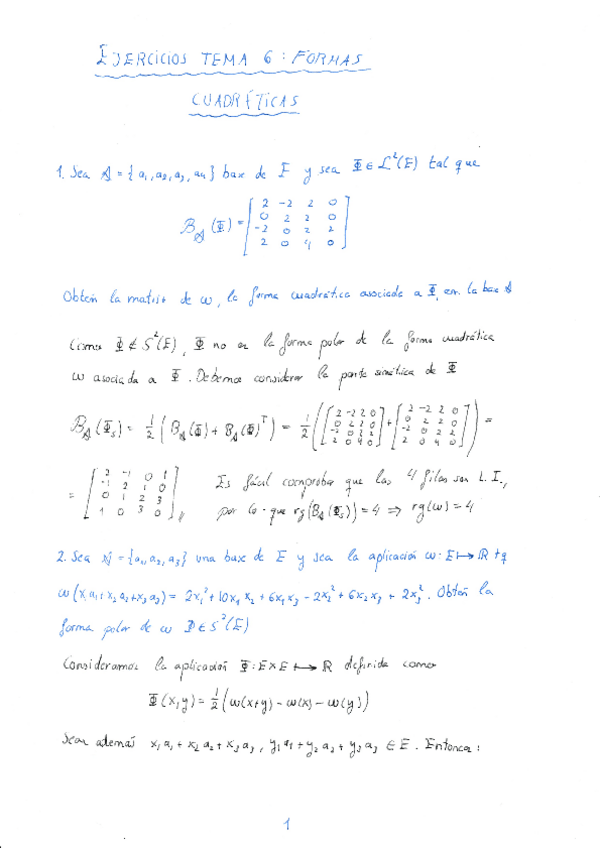 EJERCICIOS TEMA 6: FORMAS
CUADRÁTICAS
1. Sea A = {a₁, a₂, a₃, a₄} base de E y sea Φ ∈ L²(E) tal que
B_A(Φ) = [2 -2 2 0
0 2 2 0
-2 0 2 2
2 0 4 0]
Obtén la matriz de ω, la forma cuadrática asociada a Φ, en la base A
Como Φ ∉ S²(E), Φ no es la forma polar de la forma cuadrática
ω asociada a Φ. Debemos considerar la parte simétrica de Φ
B_A(Φ_s) = 1/2 (B_A(Φ) + B_A(Φ)^T) = 1/2 ([2 -2 2 0
0 2 2 0
-2 0 2 2
2 0 4 0] + [2 -2 2 0
0 2 2 0
-2 0 2 2
2 0 4 0]^T) =
= [2 -1 0 1
-1 2 1 0
0 1 2 3
1 0 3 0]
Es fácil comprobar que las 4 filas son L.I.,
por lo que rg(B_A(Φ_s)) = 4 ⇒ rg(ω) = 4
2. Sea A = {a₁, a₂, a₃} una base de E y sea la aplicación ω: E ↦ R tq
ω(x₁a₁ + x₂a₂ + x₃a₃) = 2x₁² + 10x₁x₂ + 6x₁x₃ - 2x₂² + 6x₂x₃ + 2x₃². Obtén la
forma polar de ω Φ ∈ S²(E)
Consideramos la aplicación Φ: E×E ↦ R definida como
Φ(x,y) = 1/2 (ω(x+y) - ω(x) - ω(y))
Sean además x₁a₁ + x₂a₂ + x₃a₃, y₁a₁ + y₂a₂ + y₃a₃ ∈ E. Entonces:
1